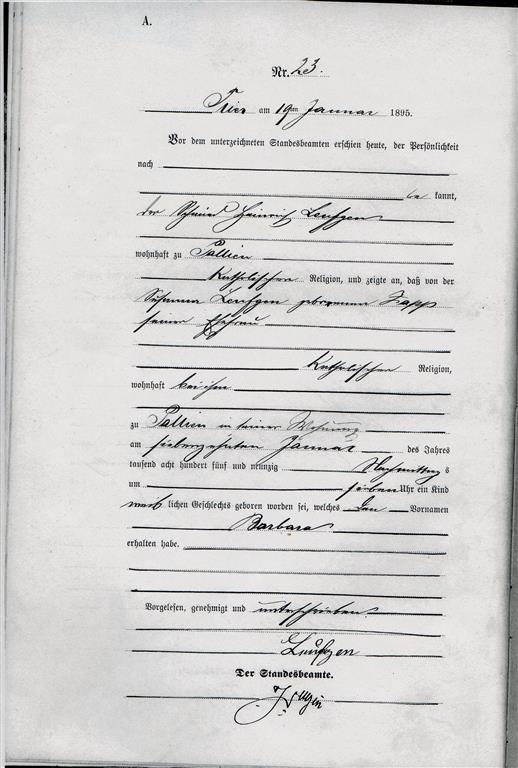 A.
Nr. 23.
Trier am 19ten Januar 1895.
Vor dem unterzeichneten Standesbeamten erschien heute, der Persönlichkeit
nach
be kannt,
der Heinrich Leufgen
wohnhaft zu Pallien
Katholischer Religion, und zeigte an, daß von der
Susanna Leufgen geborenen Zapp
seiner Ehefrau
Katholischer Religion,
wohnhaft bei ihm
zu Pallien in seiner Wohnung
am siebenzehnten Januar des Jahres
tausend acht hundert fünf und neunzig Nachmittags
um sieben Uhr ein Kind
weib lichen Geschlechts geboren worden sei, welches den Vornamen
Barbara
erhalten habe.
Vorgelesen, genehmigt und unterschrieben
Leufgen
Der Standesbeamte.